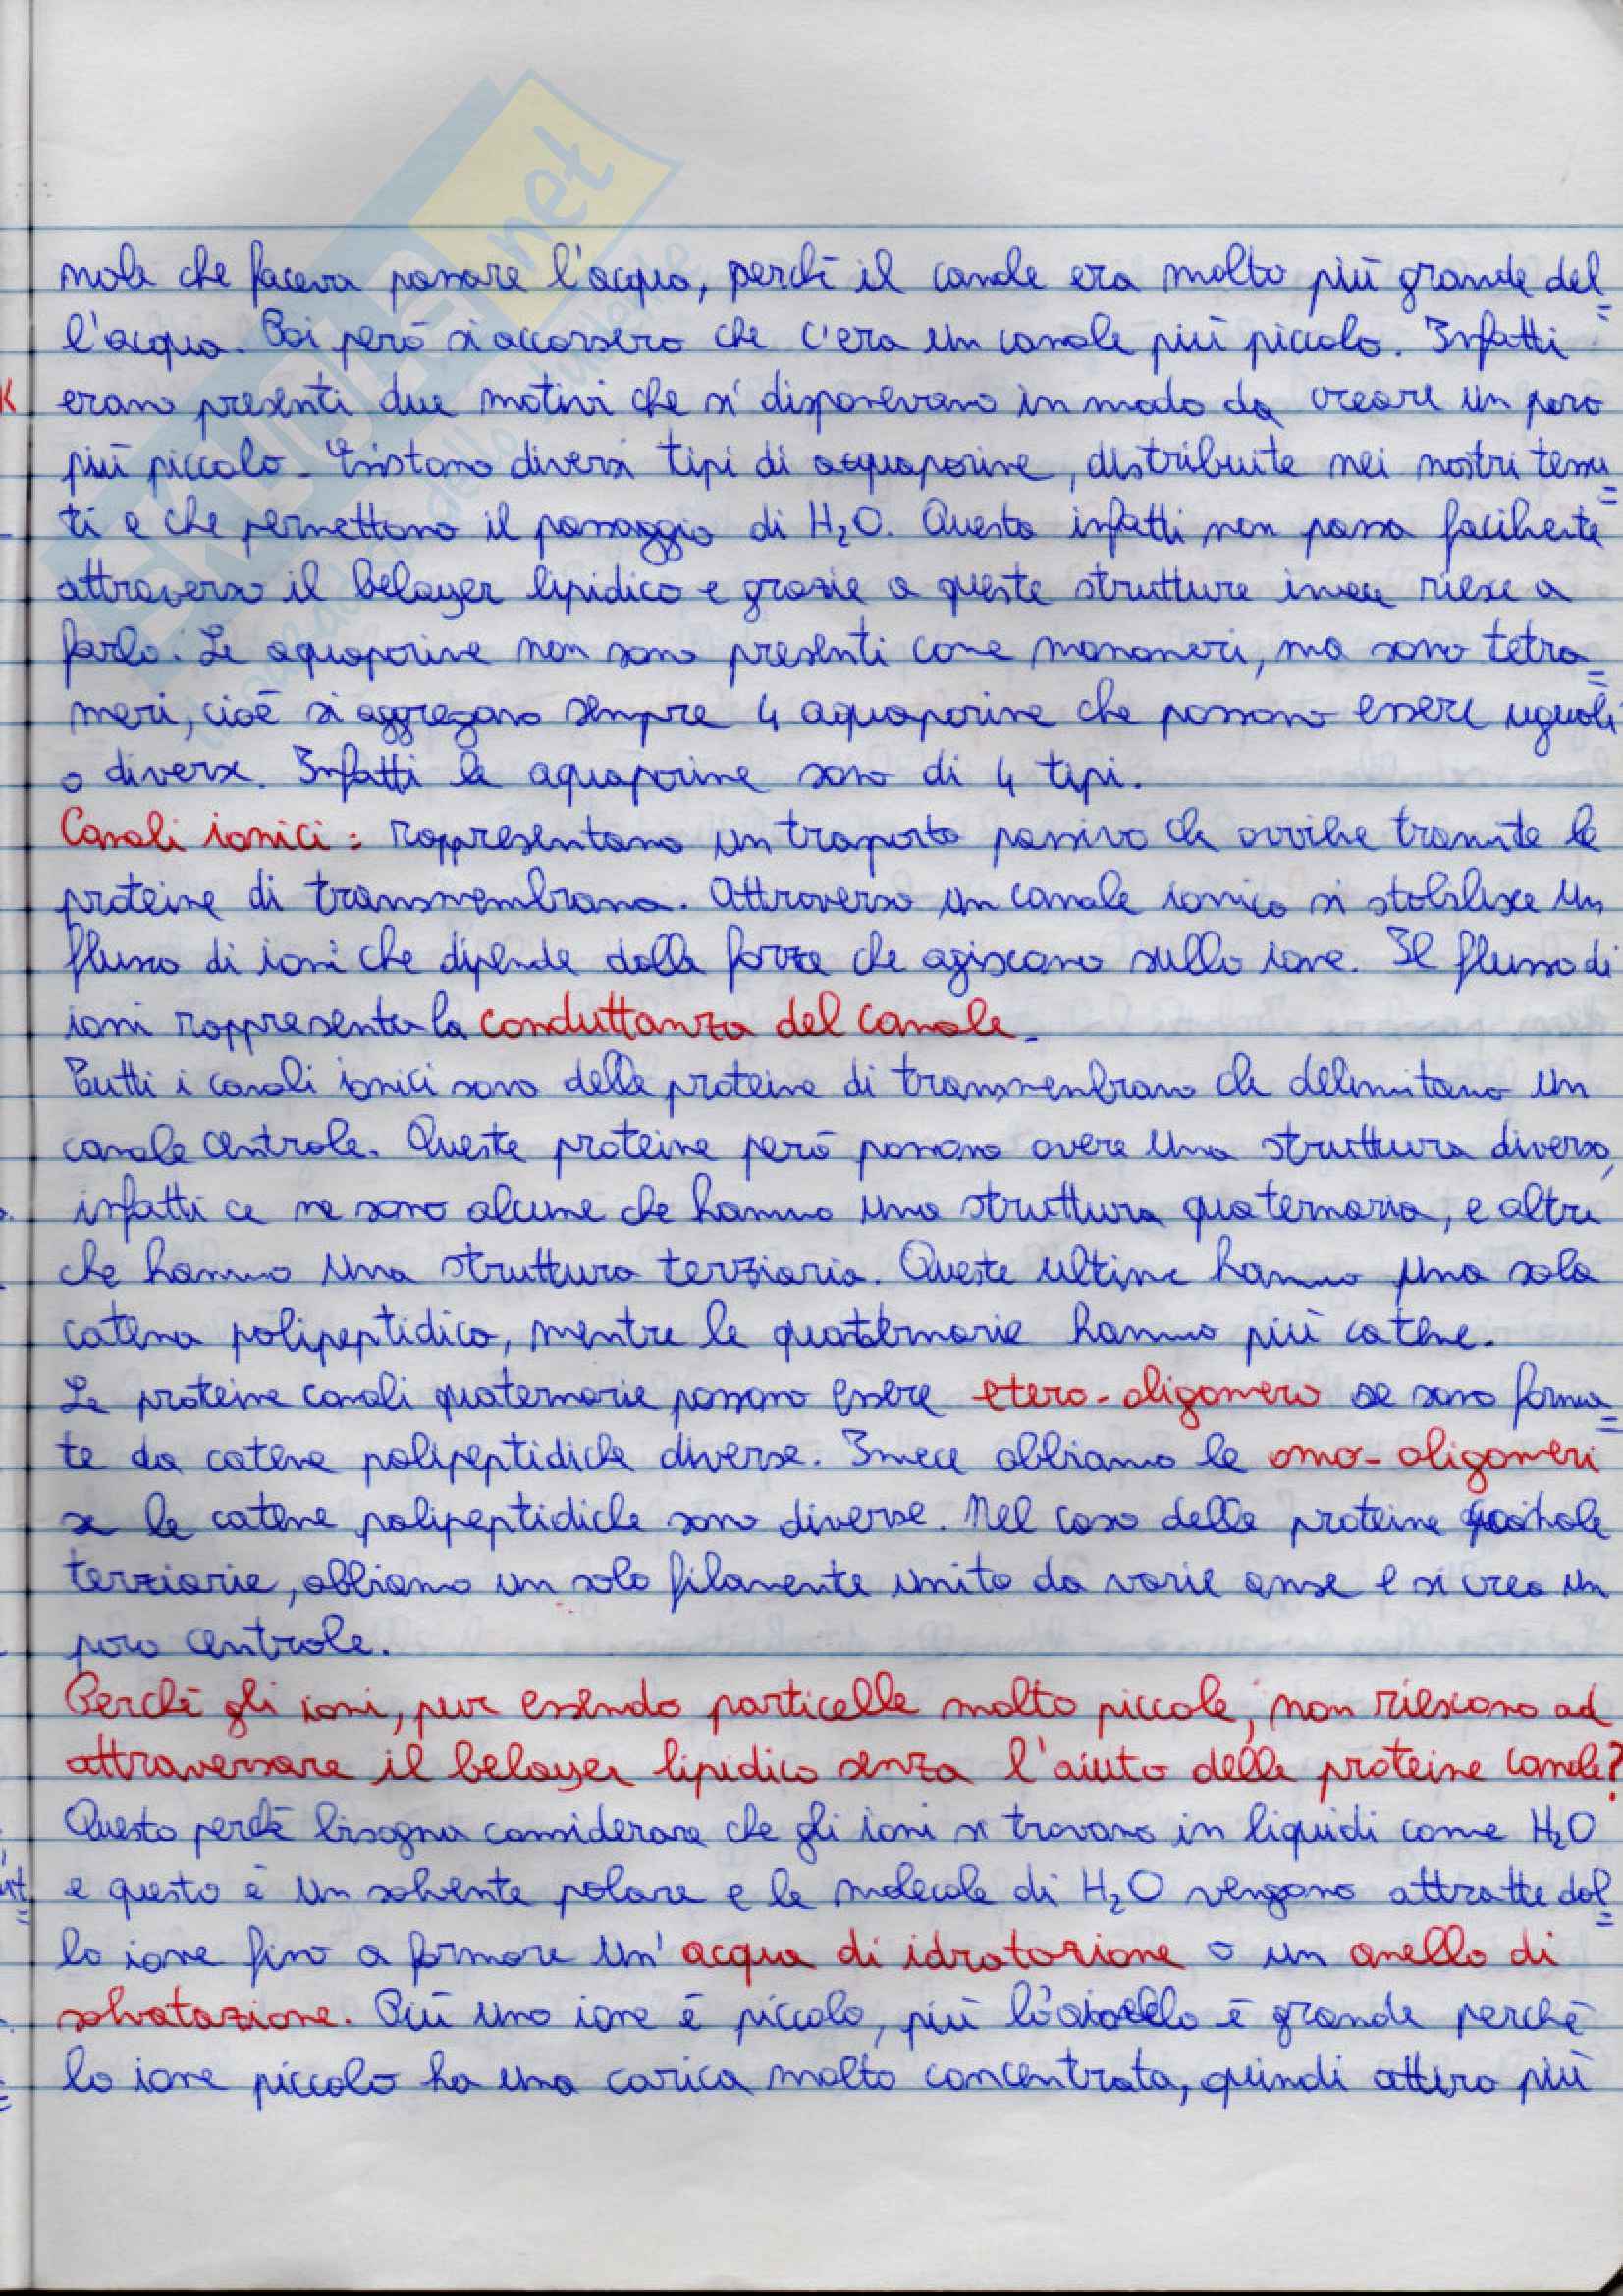 nale che faceva passare l'acqua, perchè il canale era molto più grande del=
l'acqua. Poi però si accorsero che c'era un canale più piccolo. Infatti
erano presenti due motivi che si disponevano in modo da creare un poro
più piccolo. Esistono diversi tipi di acquaporine, distribuite nei nostri tessu=
ti e che permettono il passaggio di H₂O. Questa infatti non passa facilmente
attraverso il belayer lipidico e grazie a queste strutture invece riesce a
farlo. Le aquaporine non sono presenti come monomeri, ma sono tetra=
meri, cioè si aggregano sempre 4 aquaporine che possono essere uguali
o diverse. Infatti le aquaporine sono di 4 tipi.
Canali ionici: rappresentano un trasporto passivo che avviene tramite le
proteine di transmembrana. Attraverso un canale ionico si stabilisce un
flusso di ioni che dipende dalle forze che agiscono sullo ione. Il flusso di
ioni rappresenta la conduttanza del canale.
Tutti i canali ionici sono delle proteine di transmembrana che delimitano un
canale centrale. Queste proteine però possono avere una struttura diversa,
infatti ce ne sono alcune che hanno una struttura quaternaria, e altre
che hanno una struttura terziaria. Queste ultime hanno una sola
catena polipeptidica, mentre le quaternarie hanno più catene.
Le proteine canali quaternarie possono essere etero-oligomero se sono forma=
te da catene polipeptidiche diverse. Invece abbiamo le omo-oligomeri
se le catene polipeptidiche sono diverse. Nel caso delle proteine
terziarie, abbiamo un solo filamento unito da varie anse e si crea un
poro centrale.
Perchè gli ioni, pur essendo particelle molto piccole, non riescono ad
attraversare il belayer lipidico senza l'aiuto delle proteine canale?
Questo perchè bisogna considerare che gli ioni si trovano in liquidi come H₂O
e questo è un solvente polare e le molecole di H₂O vengono attratte dal=
lo ione fino a formare un'acqua di idratazione o un anello di
solvatazione. Più uno ione è piccolo, più è grande perchè
lo ione piccolo ha una carica molto concentrata, quindi attira più
SKUOLA.net